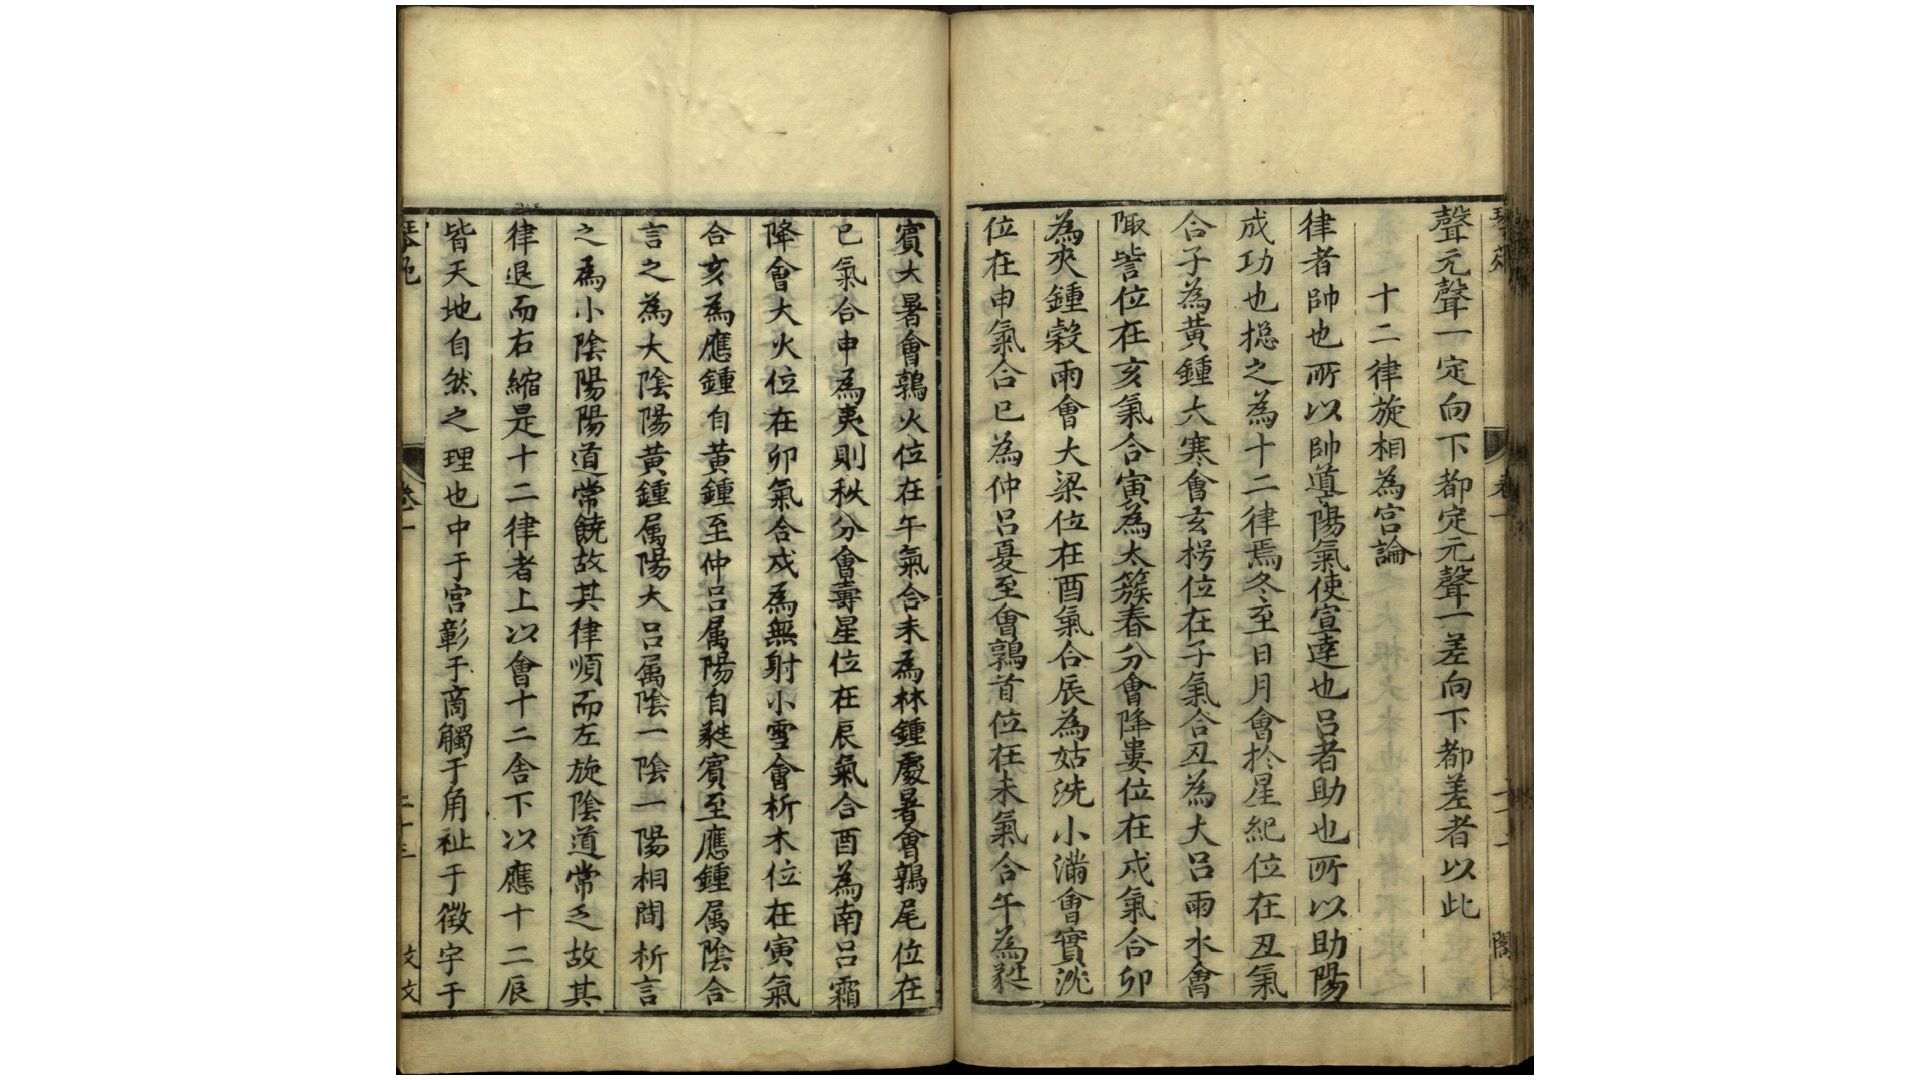 聲元聲一定向下都定元聲一差向下都差者以此
十二律旋相為宮論
律者帥也所以帥道陽氣使宣達也呂者助也所以助陽
成功也摠之為十二律焉冬至日月會於星紀位在丑氣
合子為黃鍾大寒會玄枵位在子氣合丑為大呂雨水會
陬訾位在亥氣合寅為太簇春分會降婁位在戌氣合卯
為夾鍾穀雨會大梁位在酉氣合辰為姑洗小滿會實沈
位在申氣合巳為仲呂夏至會鶉首位在未氣合午為蕤
賓大暑會鶉火位在午氣合未為林鍾處暑會鶉尾位在
巳氣合申為夷則秋分會壽星位在辰氣合酉為南呂霜
降會大火位在卯氣合戌為無射小雪會析木位在寅氣
合亥為應鍾自黃鍾至仲呂属陽自蕤賓至應鍾属陰合
言之為大陰陽黃鍾属陽大呂属陰一陰一陽相間析言
之為小陰陽陽道常饒故其律順而左旋陰道常乏故其
律退而右縮是十二律者上以會十二舍下以應十二辰
皆天地自然之理也中于宮彰于商觸于角祉于徵宇于
卷一